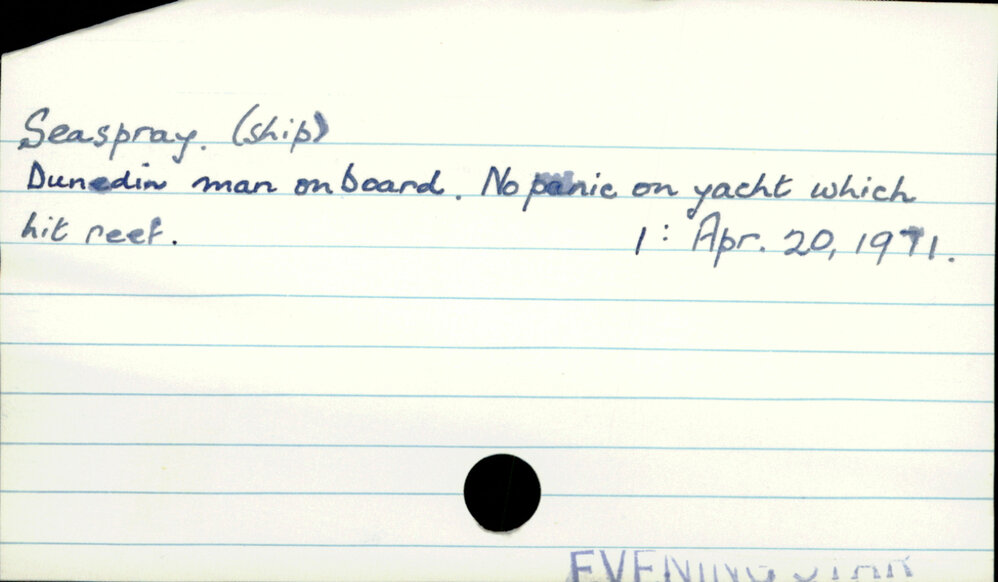 Seaspray. (ship)
Dunedin man on board. No panic on yacht which
hit reef. 1: Apr. 20, 1971.
EVENING STAR